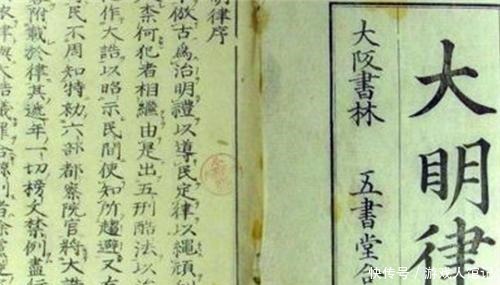 大明律
大阪書林 五書堂合
明律序
倣古爲治明禮以導民定律以繩頑
柰何犯者相繼由是出五刑酷法以治
作大誥以昭示民間使知所趨避又有
民不周知特勑六部都察院官將大誥
附載於律其遞年一切榜文禁例盡行
律與大誥議罪
快传号